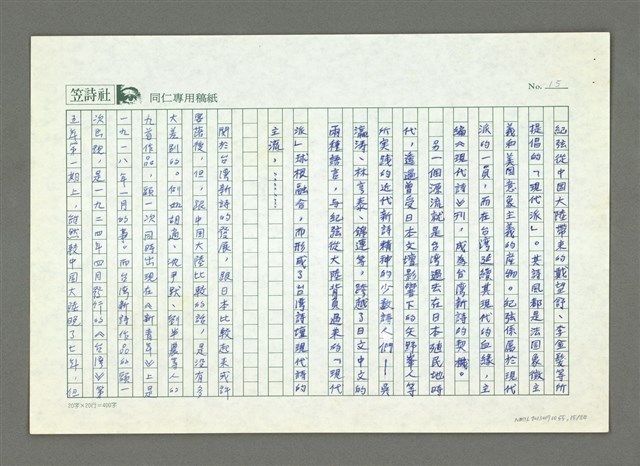 笠詩社
同仁專用稿紙
No. 15
紀弦從中國大陸帶來的戴望舒、李金髮等所
提倡的「現代派」。其詩風都是法國象徵主
義和美國意象主義的產物。紀弦係屬於現代
派的一員，而在台灣延續其現代的血緣，主
編《現代詩》刊，成為台灣新詩的契機。
另一個源流就是台灣過去在日本殖民地時
代，透過曾受日本文壇影響下的矢野峯人等
所實踐的近代新詩精神的少數詩人們——吳
瀛濤、林亨泰、錦連等，跨越了日文中文的
兩種語言，與紀弦從大陸背負過來的「現代
派」球根融合，而形成了台灣詩壇現代詩的
主流，……
關於台灣新詩的發展，跟日本比較起來或許
落後，但，跟中國大陸比較的話，是沒有多
大差別的。例如胡適、沈尹默、劉半農等人的
九首作品，頭一次同時出現在《新青年》上是
一九一八年一月的事。而台灣新詩作品的頭一
次出現，是一九二四年四月發行的《台灣》第
五年第一期上，雖然較中國大陸晚了七年，但
20字×20行=400字